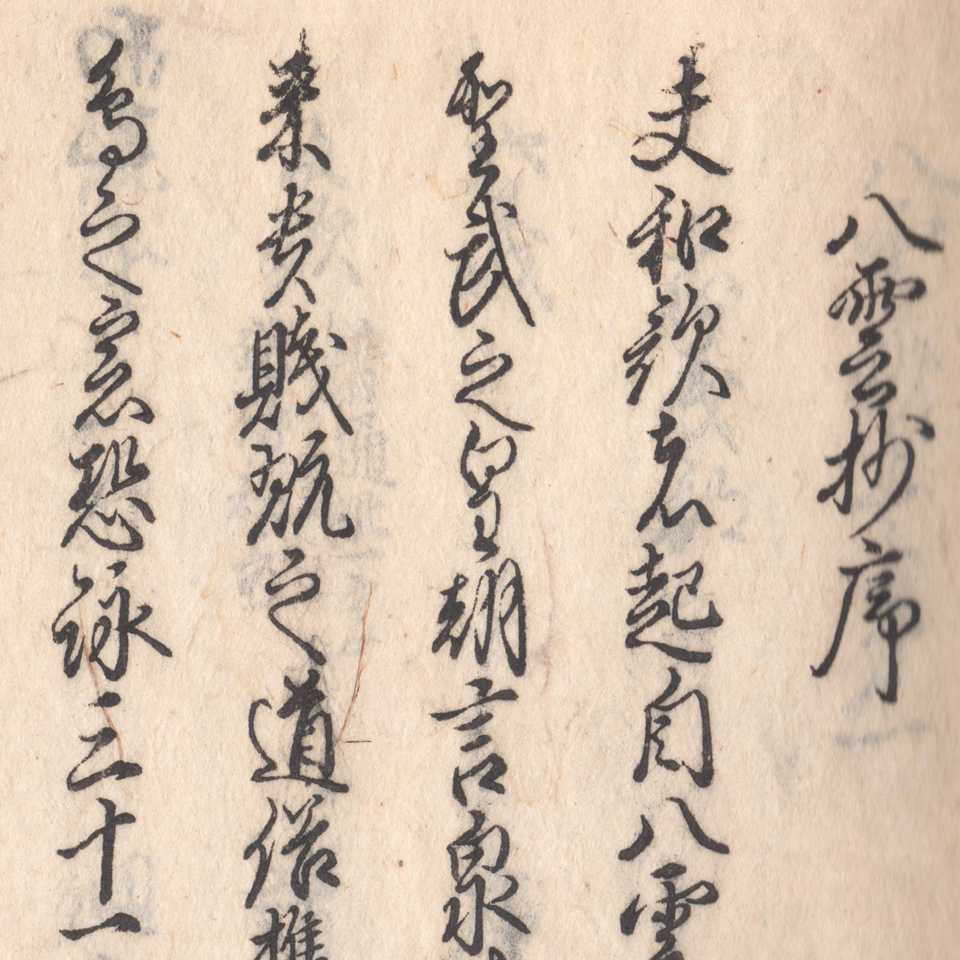 八雲抄序
夫和歌者起自八雲
聖武之皇朝言泉
来貴賤翫之道俗携
為之窓恐詠三十一